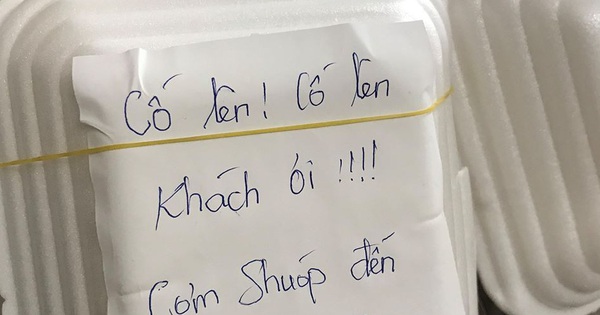 Cố lên! Cố lên
Khách ói !!!!
Cơm Shuốp đến